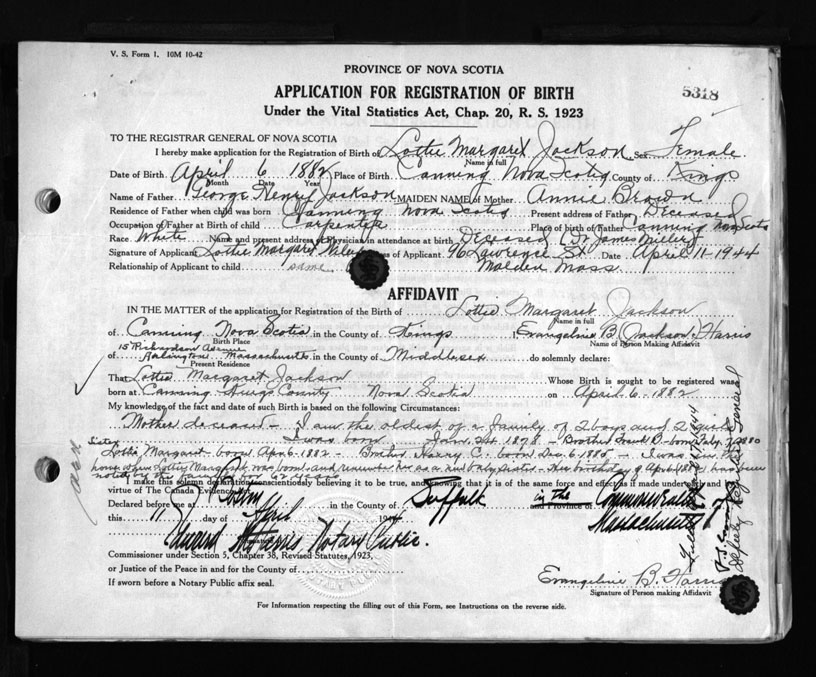 V. S. Form 1. 10M 10-42
PROVINCE OF NOVA SCOTIA
APPLICATION FOR REGISTRATION OF BIRTH
5318
Under the Vital Statistics Act, Chap. 20, R. S. 1923
TO THE REGISTRAR GENERAL OF NOVA SCOTIA
I hereby make application for the Registration of Birth of Lottie Margaret Jackson Sex Female
Name in full
Date of Birth April 6 1882 Place of Birth Canning Nova Scotia County of Kings
Month Date Year
Name of Father George Henry Jackson MAIDEN NAME of Mother Annie Brown
Residence of Father when child was born Canning Nova Scotia Present address of Father Deceased
Occupation of Father at Birth of child Carpenter Place of birth of Father Canning Nova Scotia
Race White Name and present address of Physician in attendance at birth Deceased (Dr James Miller)
Signature of Applicant Lottie Margaret Address of Applicant 96 Lawrence St Date April 11-1944
Relationship of Applicant to child same Malden Mass
AFFIDAVIT
IN THE MATTER of the application for Registration of the Birth of Lottie Margaret Jackson
Name in full
of Canning Nova Scotia in the County of Kings I, Evangeline B. (Jackson) Harris
Birth Place Name of Person Making Affidavit
15 Richardson Avenue
of Massachusetts in the County of Middlesex do solemnly declare:
Present Residence
That Lottie Margaret Jackson Whose Birth is sought to be registered was
born at Canning Kings County Nova Scotia on April 6-1882
My knowledge of the fact and date of such Birth is based on the following Circumstances:
Mother deceased - I am the oldest of a family of 2 boys and 2 girls
I was born Jan 24 1878 - Brother D - born July 1880
Sister
Lottie Margaret born Apr 6-1882 - Brother Harry C. born Dec 6 1885 - I was in the
home when Lottie Margaret was born and remember her as a baby sister - Her birthday of Apr 6 1882 has been
noted by the family for 62 years
I make this solemn declaration conscientiously believing it to be true, and knowing that it is of the same force and effect as if made under and by
virtue of The Canada Evidence Act.
Declared before me at in the County of Suffolk in the Commonwealth of
and Province of Massachusetts
this 11 day of April 1944
Harris Notary Public.
Commissioner under Section 5, Chapter 38, Revised Statutes, 1923,
or Justice of the Peace in and for the County of
If sworn before a Notary Public affix seal.
Evangeline B. Harris
Signature of Person making Affidavit
For Information respecting the filling out of this Form, see Instructions on the reverse side.
Deputy Registrar General